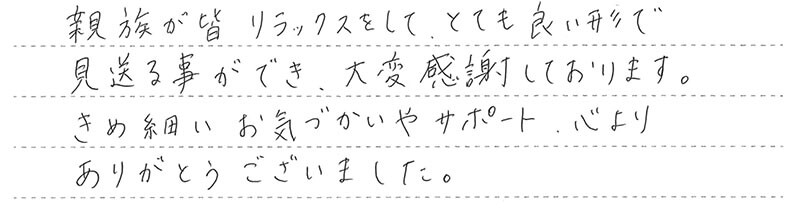 親族が皆 リラックスをして、とても良い形で
見送る事ができ、大変感謝しております。
きめ細い お気づかいや サポート、心より
ありがとうございました。